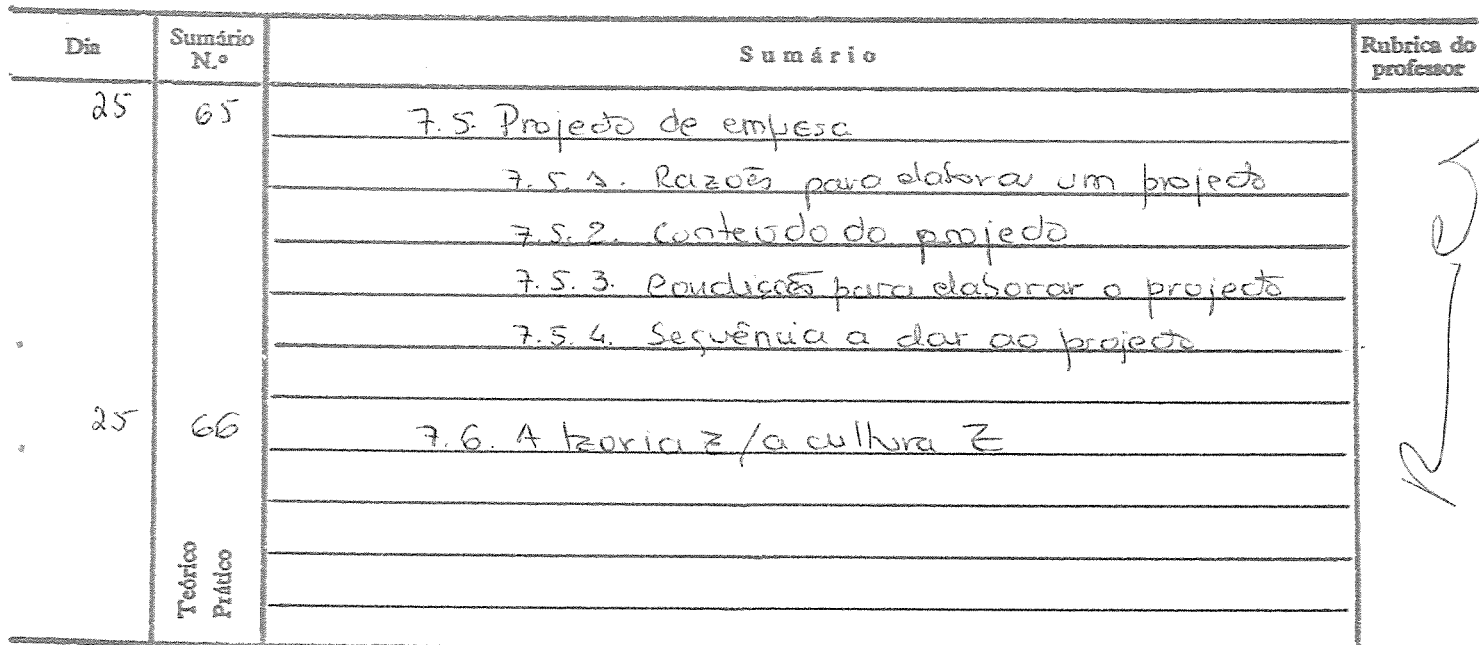 Dia Sumário N.º Sumário Rubrica do professor
25 65 7.5. Projecto de empresa
7.5.1. Razões para elaborar um projecto
7.5.2. Conteúdo do projecto
7.5.3. Condições para elaborar o projecto
7.5.4. Sequência a dar ao projecto
25 66 7.6. A teoria Z / a cultura Z
Teórico
Prático